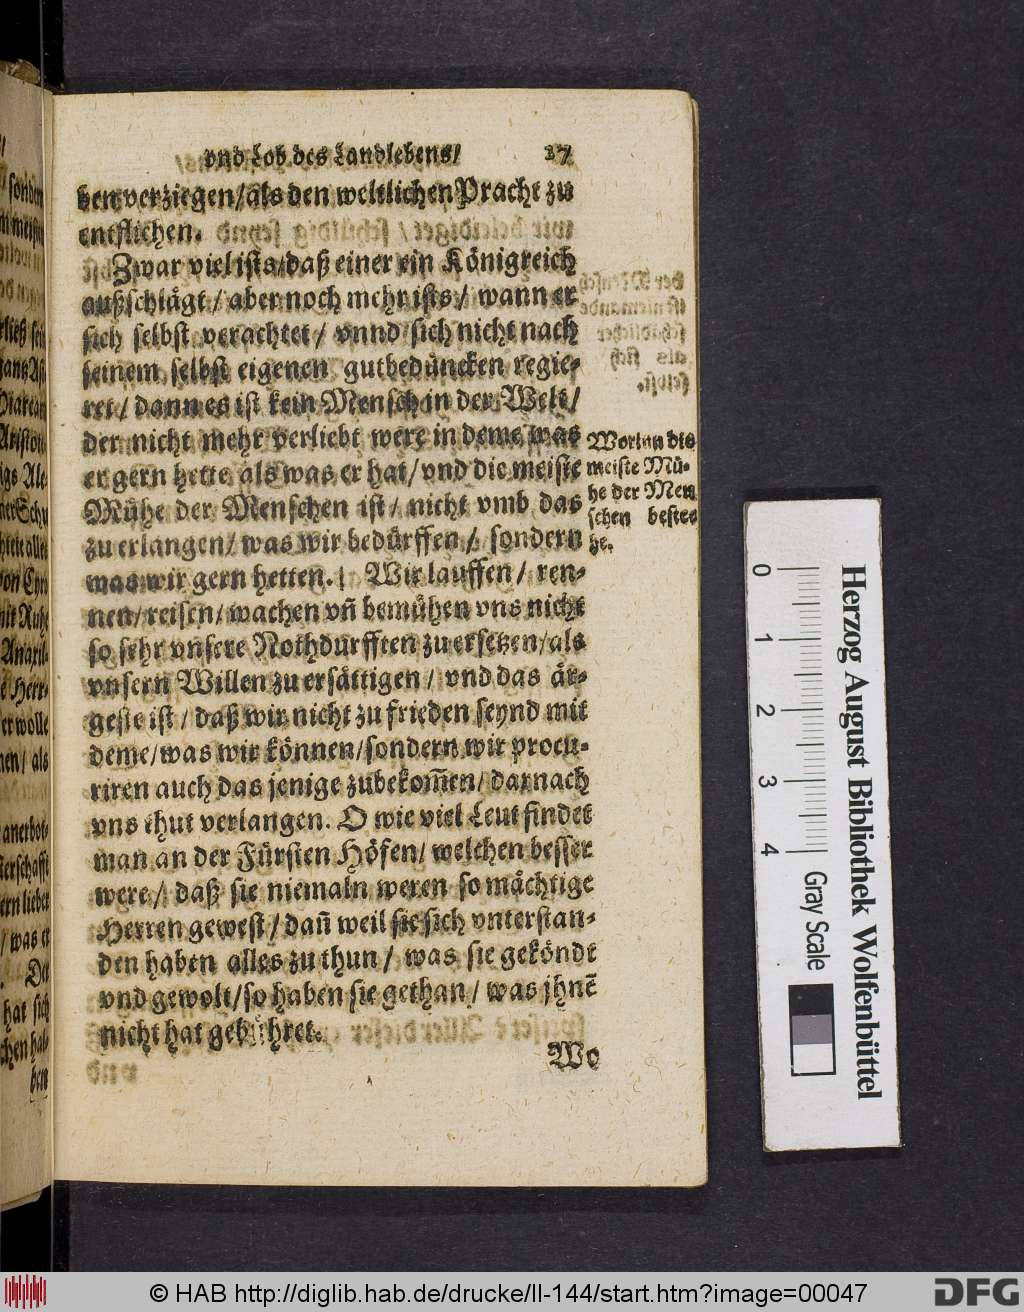 vnd Lob des Landlebens/ 27
ben verziegen/als den weltlichen Pracht zu
entfliehen.
Zwar viel ists/daß einer ein Königreich
außschlägt/ aber noch mehr ists/ wann er
sich selbst verachtet/ vnnd sich nicht nach
seinem selbst eigenen gutbedüncken regie-
ret/ dann es ist kein Mensch in der Welt/
der nicht mehr verliebt were in deme was
er gern hette als was er hat/ vnd die meiste
Mühe der Menschen ist/ nicht vmb das
zu erlangen/ was wir bedürffen/ sondern
was wir gern hetten. Wir lauffen/ ren-
nen/reisen/wachen vñ bemühen vns nicht
so sehr vnsere Nothdurfften zu ersetzen/als
vnsern Willen zu ersättigen/ vnd das är-
geste ist/ daß wir nicht zu frieden seynd mit
deme/was wir können/sondern wir procu-
riren auch das jenige zubekom̃en/ darnach
vns thut verlangen. O wie viel Leut findet
man an der Fürsten Höfen/ welchen besser
were/ daß sie niemaln weren so mächtige
Herren gewest/ dañ weil sie sich vnterstan-
den haben alles zu thun/ was sie geköndt
vnd gewolt/so haben sie gethan/ was jhnẽ
nicht hat gebühret.
Wo
Worinn die
meiste Mü-
he der Men
schen bestee
he.
0 1 2 3 4
Gray Scale
Herzog August Bibliothek Wolfenbüttel
© HAB http://diglib.hab.de/drucke/ll-144/start.htm?image=00047
DFG